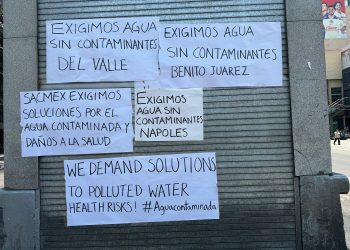 EXIGIMOS AGUA
SIN CONTAMINANTES
DEL VALLE
EXIGIMOS AGUA
SIN CONTAMINANTES
BENITO JUAREZ
SACMEX EXIGIMOS
SOLUCIONES POR EL
AGUA CONTAMINADA Y
DAÑOS A LA SALUD
EXIGIMOS
AGUA SIN
CONTAMINANTES
NAPOLES
WE DEMAND SOLUTIONS
TO POLLUTED WATER
HEALTH RISKS! #Aguacontaminada